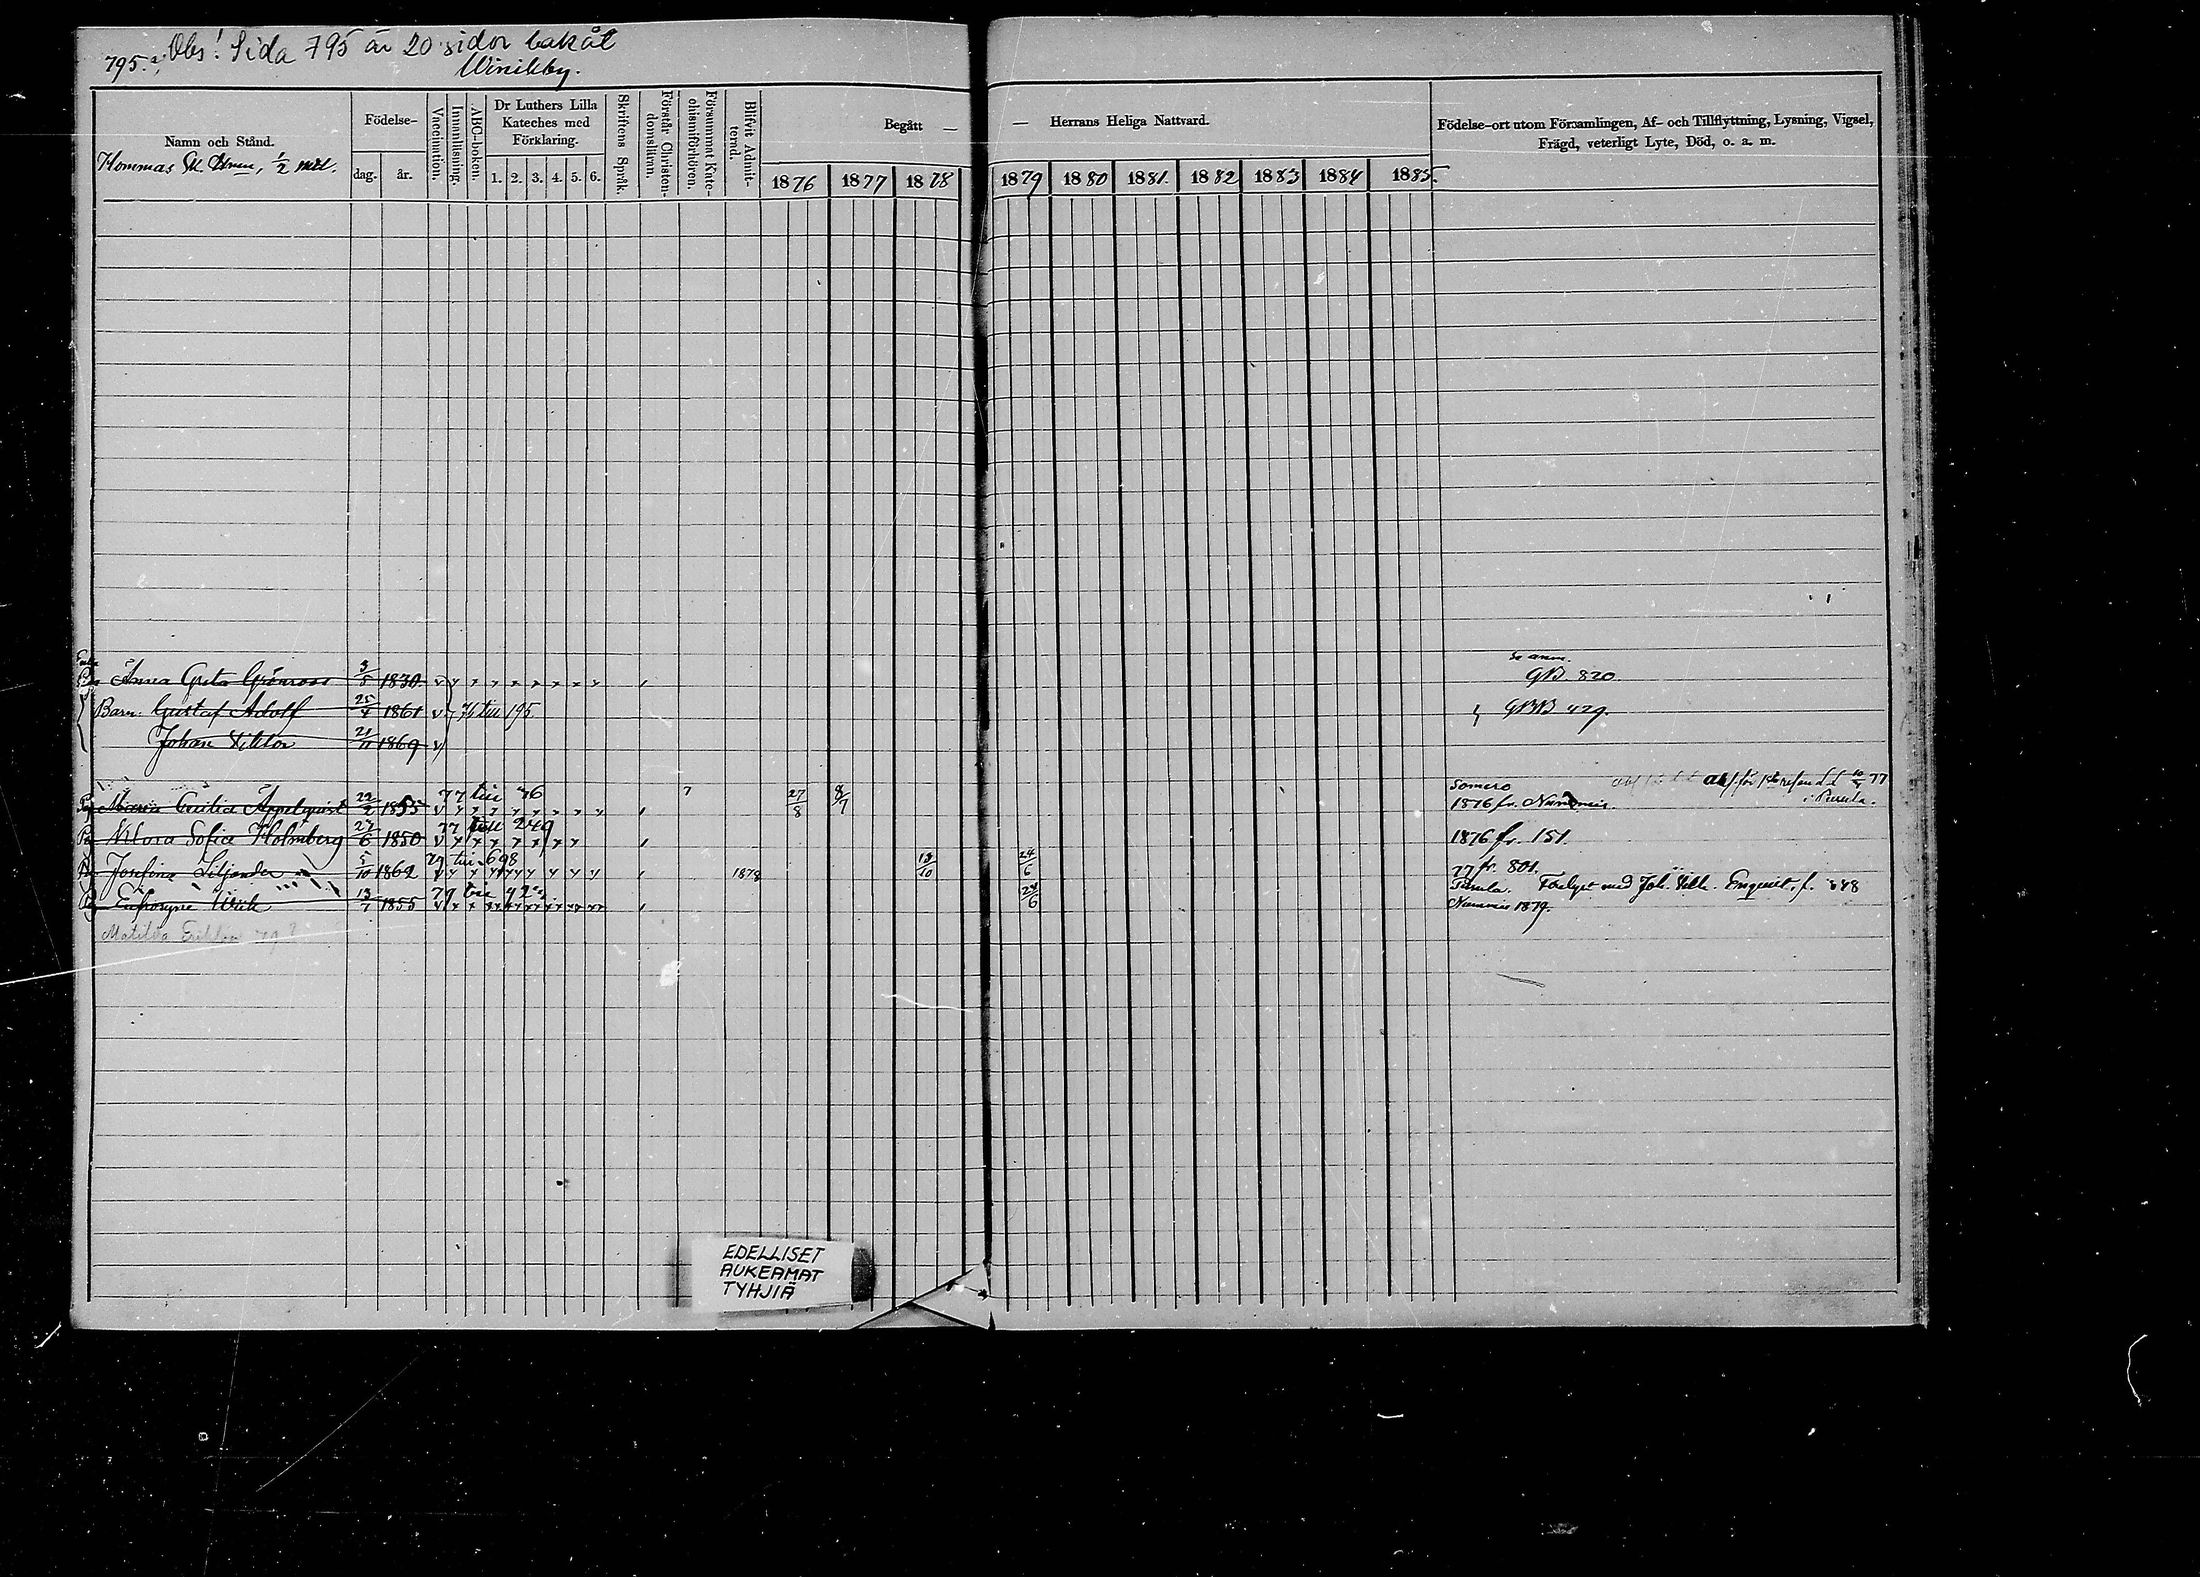 795.a, Obs! Sida 795 är 20 sidor bakåt
Winikby.
Namn och Stånd.
Kommas 1/2 mtl.
Födelse-
dag.
år.
Vaccination.
Innanläsning.
ABC-boken.
Dr Luthers Lilla
Kateches med
Förklaring.
1. 2. 3. 4. 5. 6.
Skriftens Språk.
Förstår Christen-
domslärnn.
Försummat Kate-
chismiförhören.
Blifvit Admit-
terad.
Begått —
— Herrans Heliga Nattvard.
1876 1877 1878 1879 1880 1881. 1882 1883 1884 1885.
Födelse-ort utom Församlingen, Af- och Tillflyttning, Lysning, Vigsel,
Frägd, veterligt Lyte, Död, o. a. m.
Enka
Anna Greta Grönroos 3/5 1830. v
Se anm.
GB. 820.
Barn: Gustaf Adolf 25/4 1861 v 76 till 195
GBB 429.
Johan Viktor 21/11 1869 v
Somero
77 till 76
Pig Maria Cecilia Appelqvist 22/2 1855 v 7 27/8 8/7
1876 fr. Nummis. i Pusula.
77 till 249
Pig Klora Sofia Holmberg 27/6 1850 v
1876 fr. 151.
79 till 698
Josefina Liljander 5/10 1862 1878 13/10 24/6
77 fr. 801.
Pusula. med Joh. Enqvist, f. 348
Pig Eufrosyne Ulrik 13/7 1855 v 24/6
Nummis 1879.
Matilda
EDELLISET
AUKEAMAT
TYHJIÄ